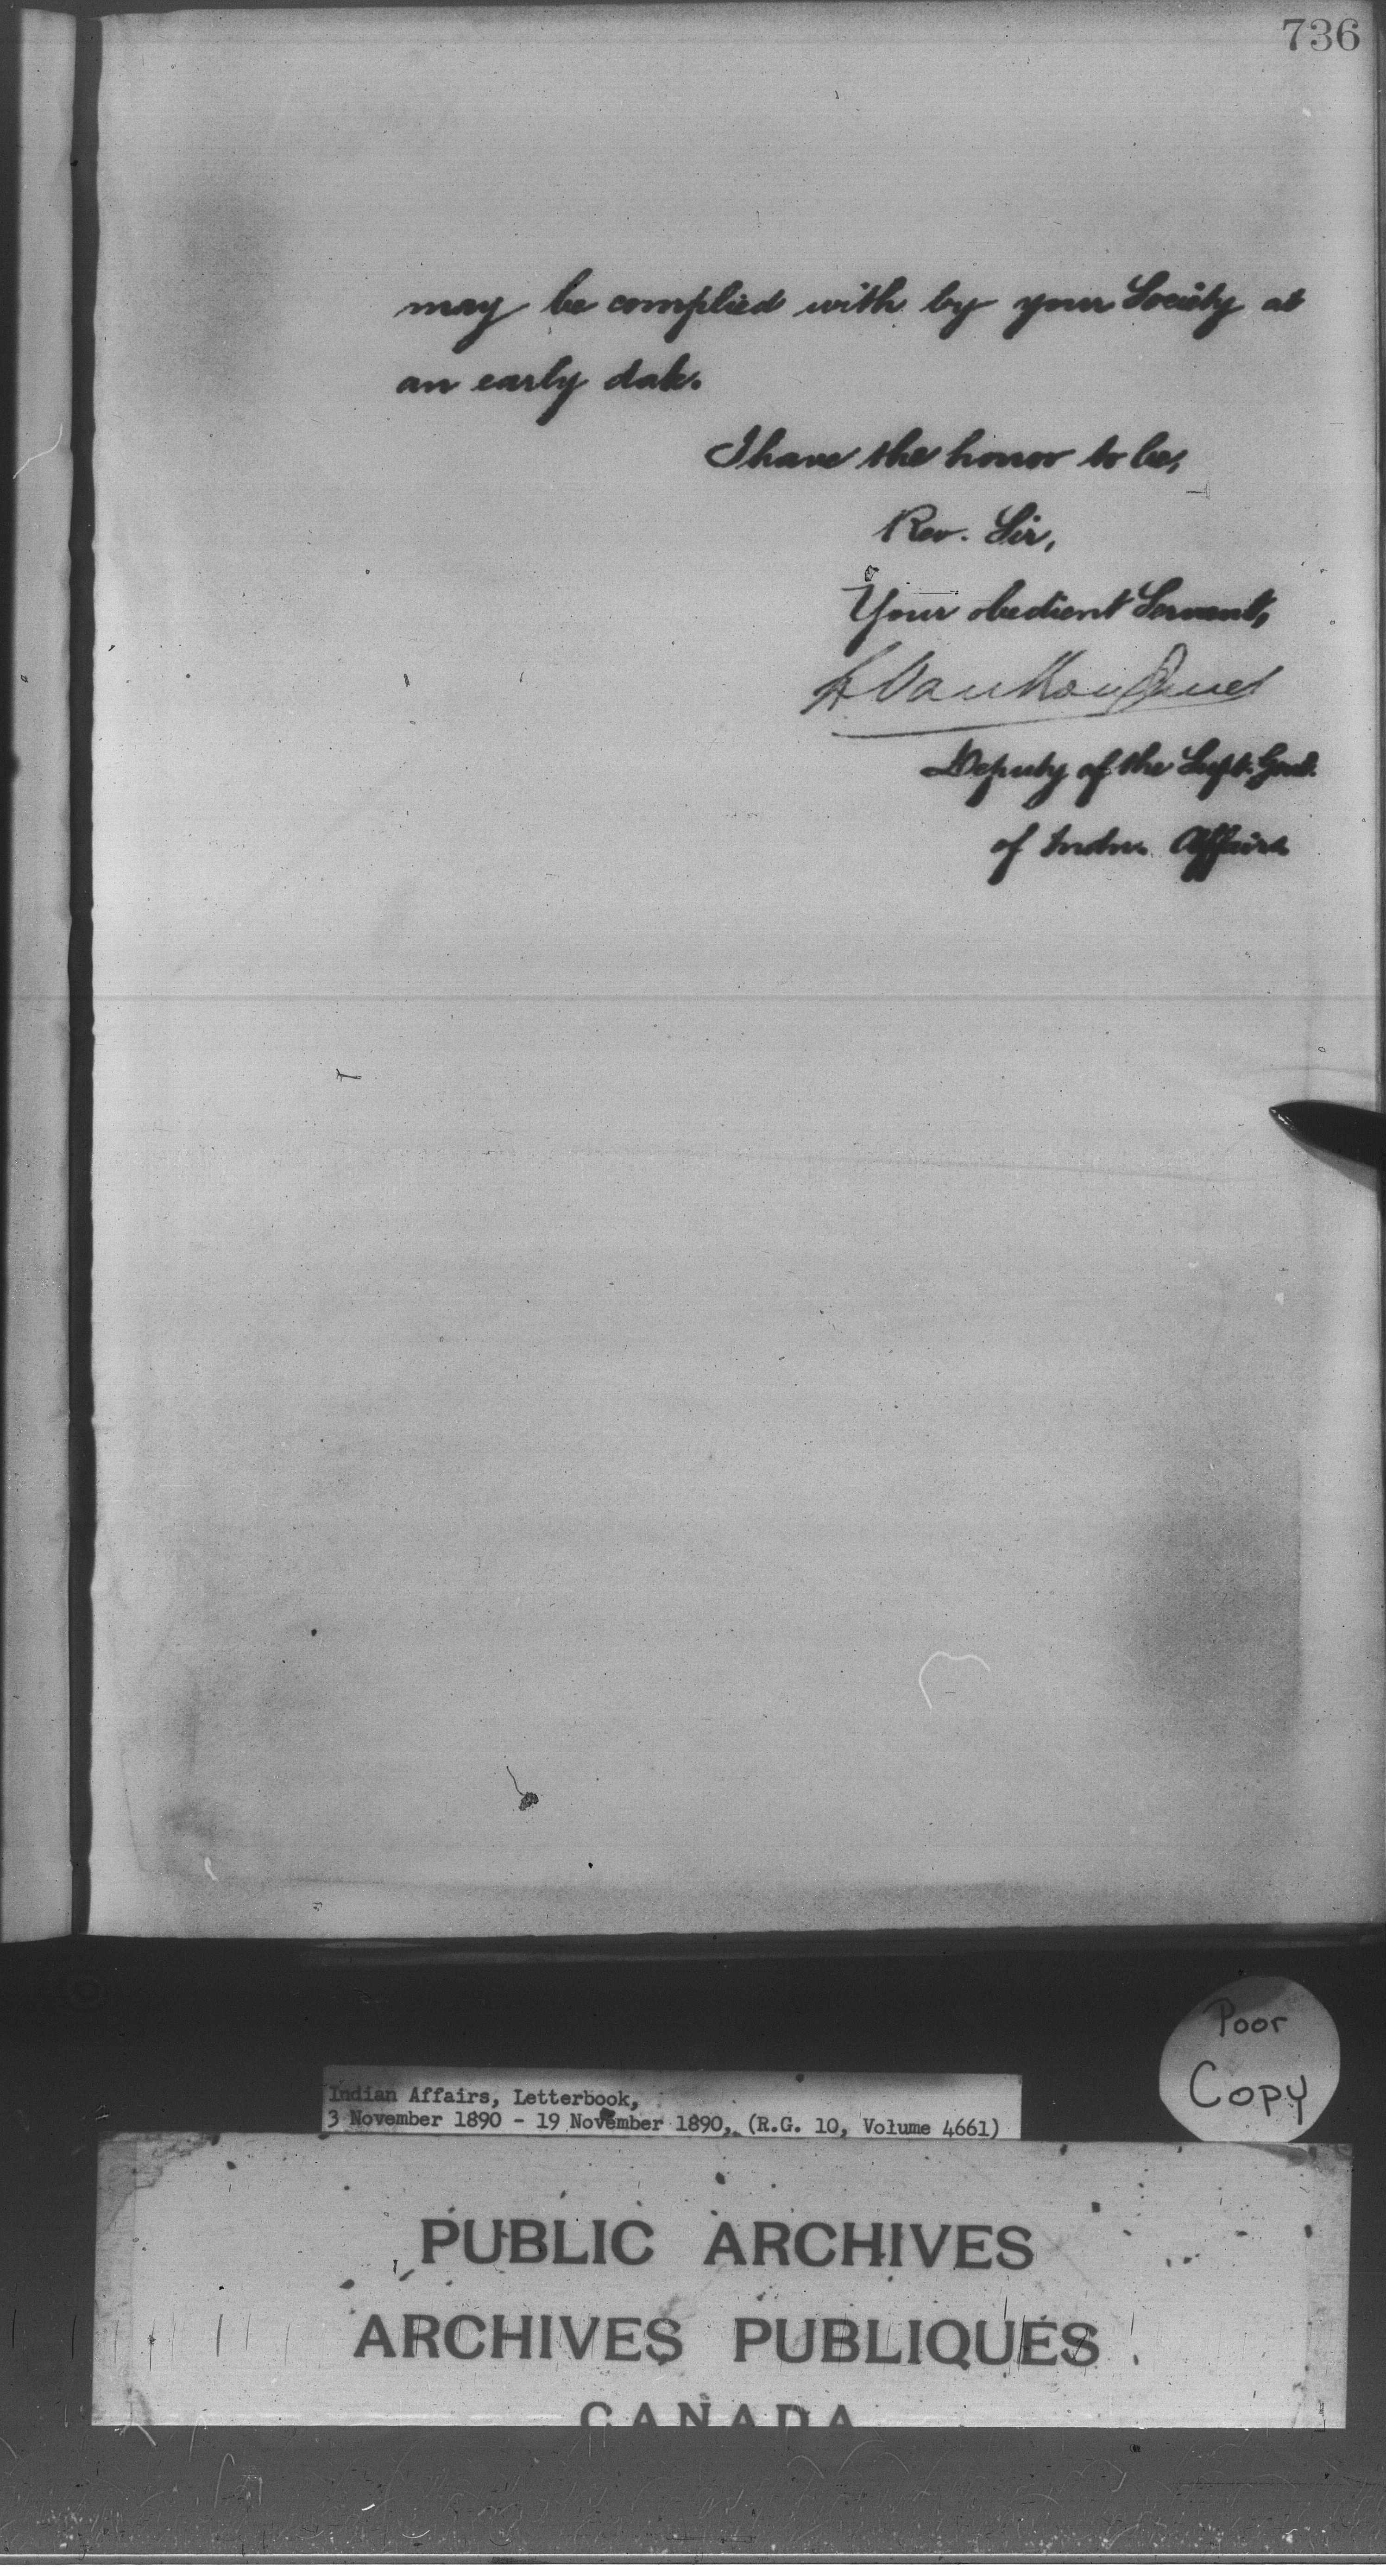 736
may be complied with by your Society at
an early date.
I have the honor to be,
Rev. Sir,
Your obedient Servant,
L Vankoughnet
Deputy of the Supt. Genl.
of Indn. Affairs
Poor
Copy
Indian Affairs, Letterbook,
3 November 1890 - 19 November 1890, (R.G. 10, Volume 4661)
PUBLIC ARCHIVES
ARCHIVES PUBLIQUES
CANADA